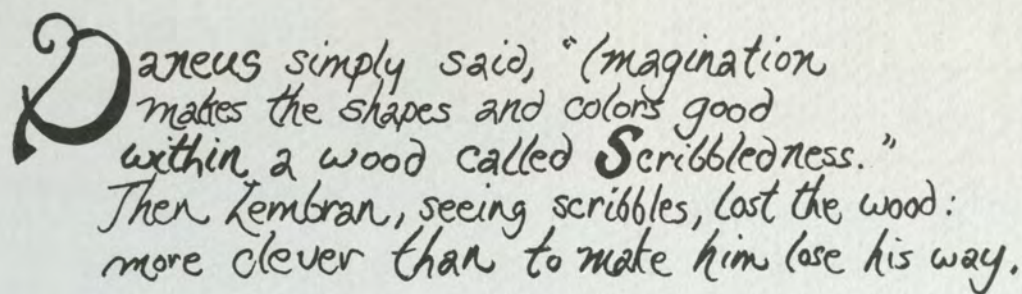 Daneus simply said, "Imagination
makes the shapes and colors good
within a wood called Scribbledness."
Then Zembran, seeing scribbles, lost the wood:
more clever than to make him lose his way.